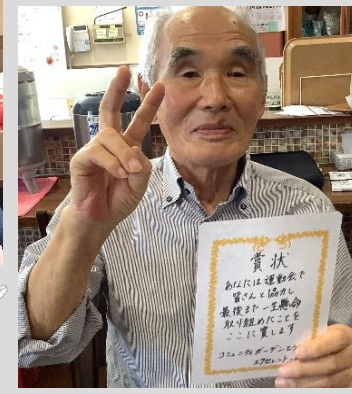 賞状
あなたは運動会で
皆さんと協力し
最後まで一生懸命
取り組めたことを
ここに賞します
コミュニティガーデン
エクセレント